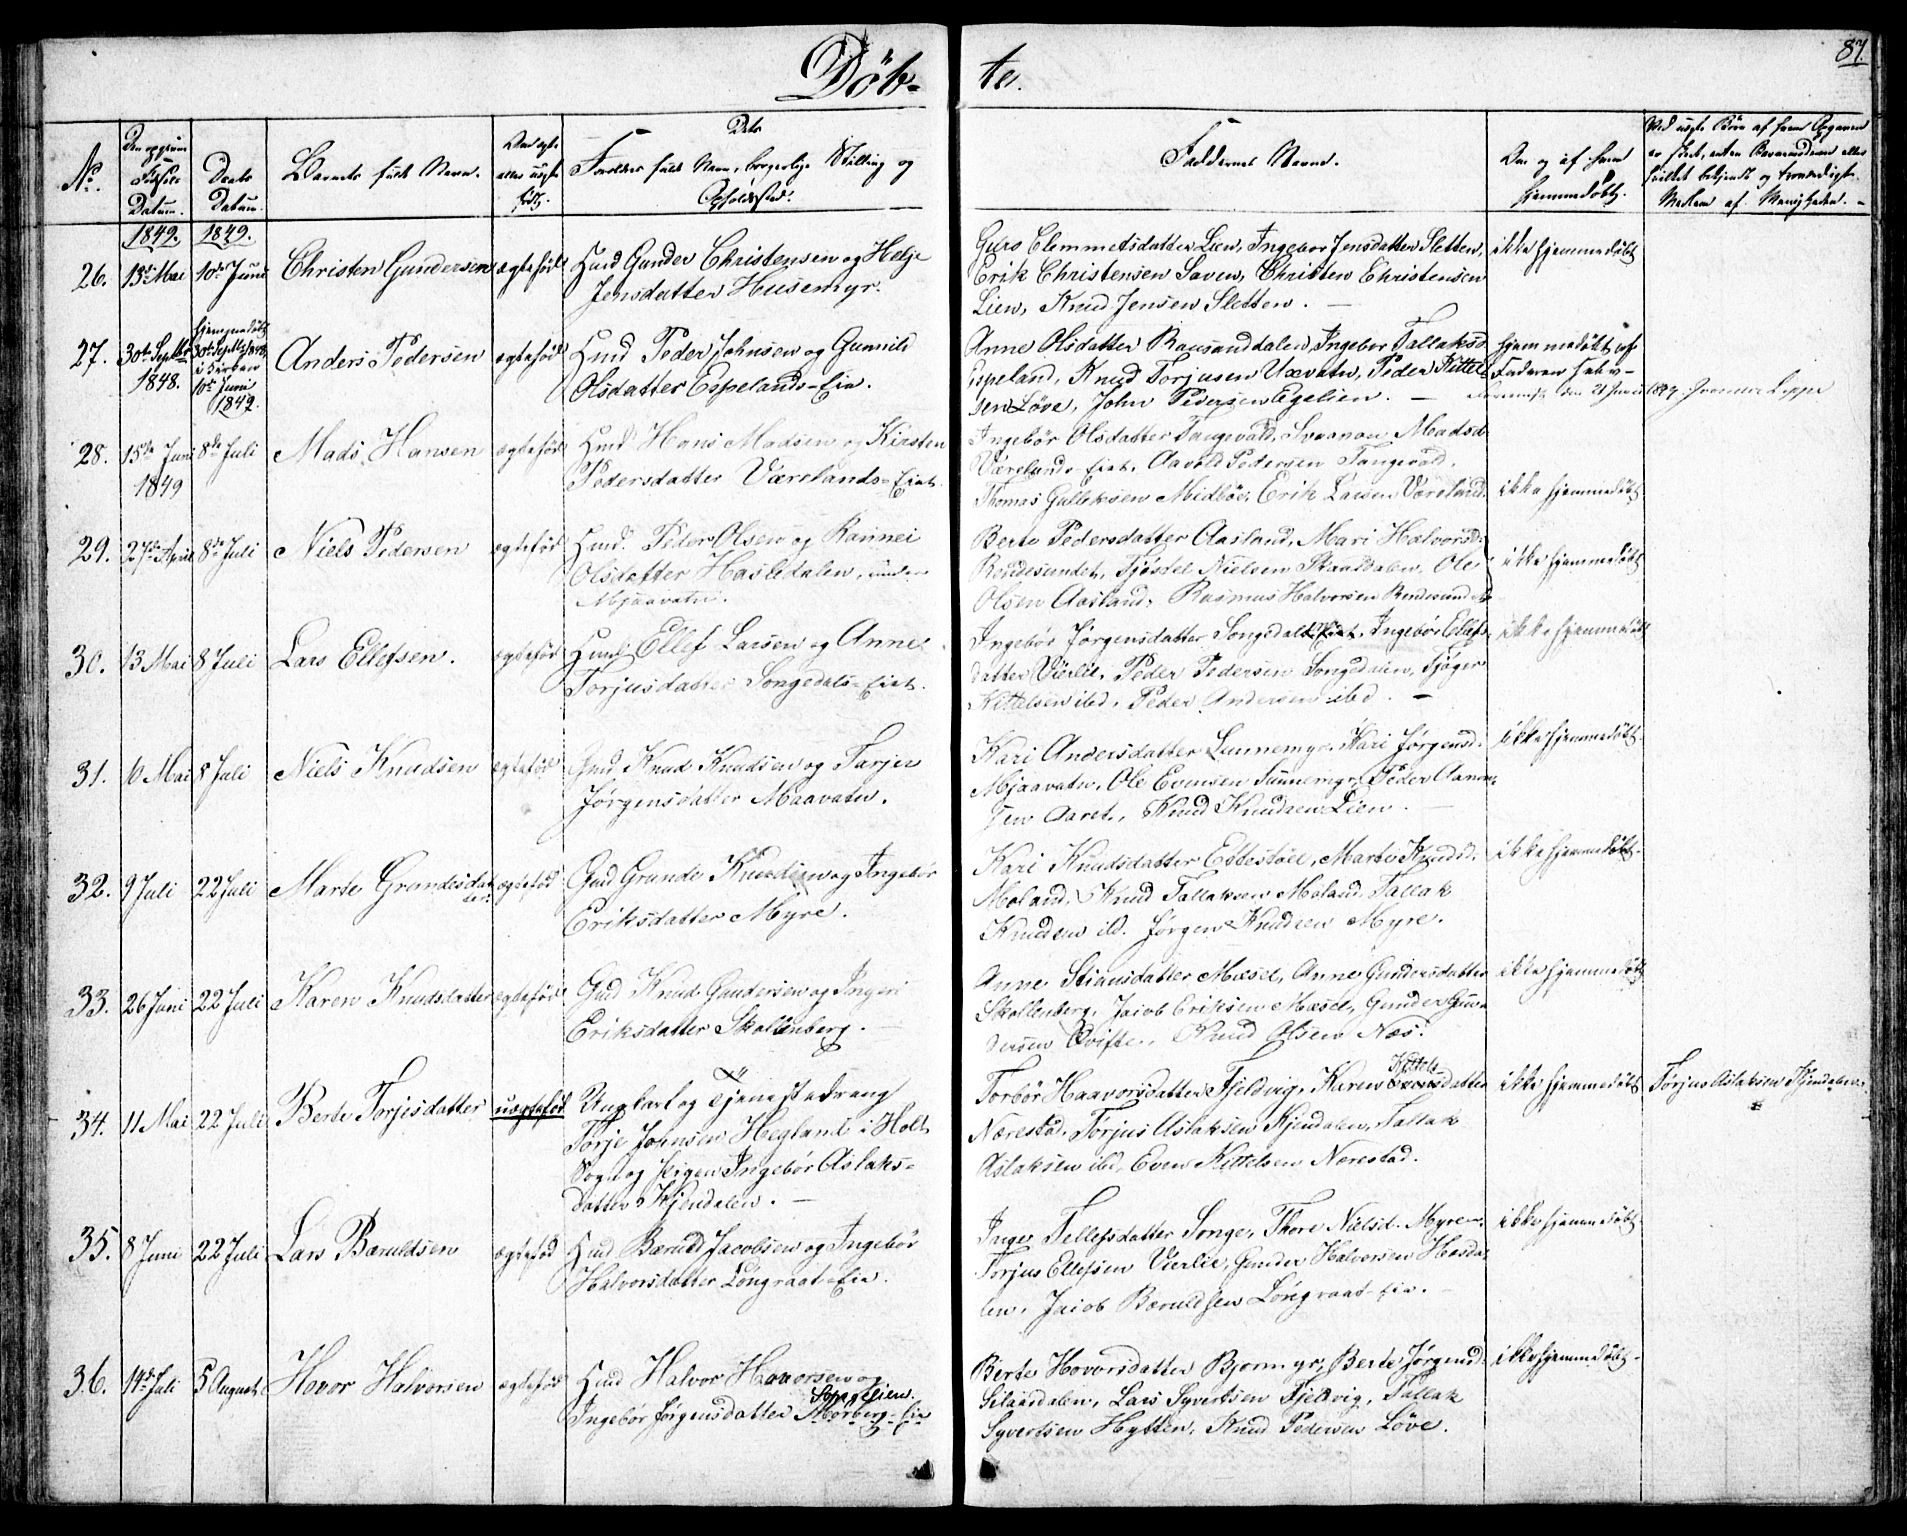 Döb-te.
87.
No.
Den opgivne Fødsels Datum.
Daabs Datum.
Barnets fulde Navn.
Om ægte eller uægte født.
Dets Forældres fulde Navn, borgerlige Stilling og Opholdssted.
Faddernes Navne.
Om og af hvem hjemmedøbt.
Ved uægte Børn af hvem Opgaven er skeet, enten Barnemoderen eller hvilket bekjendt og troværdigt Medlem af Menigheden.
1849. 1849.
26. 13de Mai 10de Juni Christen Gundersen ægtefød
Hmd Gunder Christensen og Helje
Jensdatter Husemyr.
Guro Clemmetsdatter Lien, Ingebor Jensdatter Sletten,
Erik Christensen Saven, Christen Christensen
Lien, Knud Jensen Sletten.
ikke hjemmedøbt
27. 30te Septbr 1848.
hjemmedøbt
30te Septbr 1848,
i Kirken
10de Juni
1849.
Anders Pedersen ægtefød
Hmd Peder Johnsen og Gunnild
Olsdatter Espelands-Eie.
Anne Olsdatter Rausanddalen, Ingebor Tallaksd
Espeland, Knud Torjusen Uævatn, Peder Kittel-
sen Løve, John Pedersen Egelien.
hjemmedøbt af
Faderen selv
28. 15de Juni 1849 8de Juli Mads Hansen ægtefød
Hmd Hans Madsen og Kirsten
Pedersdatter Værelands-Eiet.
Ingebör Olsdatter Tangevald, Svanau Madsd
Værelands-Eiet, Aavold Pedersen Tangevald,
Thomas Gulleksen Midböe, Erik Larsen Væreland.
ikke hjemmedøbt
29. 27de April 8de Juli Niels Pedersen ægtefød
Hmd. Peder Olsen og Rannei
Olsdatter Hasledalen, under
Mjaavatn.
Berte Pedersdatter Aasland, Mari Halvorsd.
Rendesundet, Tjöstel Nielsen Skaasdalen, Ole
Olsen Aasland, Rasmus Halvorsen Rendesundet
ikke hjemmedøbt
30. 13 Mai 8 Juli Lars Ellefsen. ægtefød
Hmd Ellef Larsen og Anne
Torjusdatter Songedals-Eiet.
Ingebör Jörgensdatter Songedals Eiet, Ingebör Ellefs-
datter Vierlie, Peder Pedersen Songedalen, Tjöger
Kittelsen ibd, Peder Andersen ibd.
ikke hjemmedøbt
31. 6 Mai 8 Juli Niels Knudsen ægtefød
Gmd Knud Knudsen og Tarjer
Jörgensdatter Maavatn.
Kari Andersdatter Sunnemyr, Kari Jörgensd.
Mjaavatn, Ole Evensen Sunnemyr, Peder Aanon-
sen Aaret, Knud Knudsen Lien.
ikke hjemmedøbt
32. 9 Juli 22 Juli Marte Grundesdat-
ter ægtefød
Gmd Grunde Knudsen og Ingebor
Eriksdatter Myre.
Kari Knudsdatter Ettestöel, Marte Knudsd.
Moland, Knud Tallaksen Moland, Tallak
Knudsen ibd. Jörgen Knudsen Myre.
ikke hjemmedøbt
33. 26 Juni 22 Juli Karen Knudsdatter ægtefød
Gmd Knud Gundersen og Ingeri
Eriksdatter Skollenberg.
Anne Stiansdatter Mæsel, Anne Gundersdatter
Skollenberg, Jacob Eriksen Mæsel, Gunder Gun-
dersen Qvifte, Knud Olsen Næs.
ikke hjemmedøbt
34. 11 Mai 22 Juli Berte Torjisdatter uægtefød
Ungkarl og Tjenestedreng
Torje Johnsen Hegland i Holt
Sogn og Pigen Ingebör Aslaks-
datter Kjendalen.
Torbör Haavorsdatter Fjeldvig, Karen Kittels
datter
Nærestad, Torjus Aslaksen Kjendalen, Tallak
Aslaksen ibd, Even Kittelsen Nærestad.
ikke hjemmedøbt
Torjus Aslaksen Kjendalen.
35. 8 Juni 22 Juli Lars Bæruldsen ægtefød
Hmd Bæruld Jacobsen og Ingebör
Halvorsdatter Löngraat-Eie.
Inger Tellefsdatter Songe, Thore Nielsd. Myrene,
Torjus Ellefsen Vierlie, Gunder Halvorsen Hasda-
len, Jacob Bæruldsen Löngraat-Eie.
ikke hjemmedøbt
36. 14de Juli 5 August Hovor Halvorsen ægtefød
Hmd Halvor Hovorsen og
Ingebör Jörgensdatter Songelien.
Morberg-Eie
Berte Hovorsdatter Bjormyr, Berte Jörgensd.
Selaasdalen, Lars Syvertsen Fjeldvig, Tallak
Syvertsen Hytten, Knud Pedersen Löve.
ikke hjemmedøbt